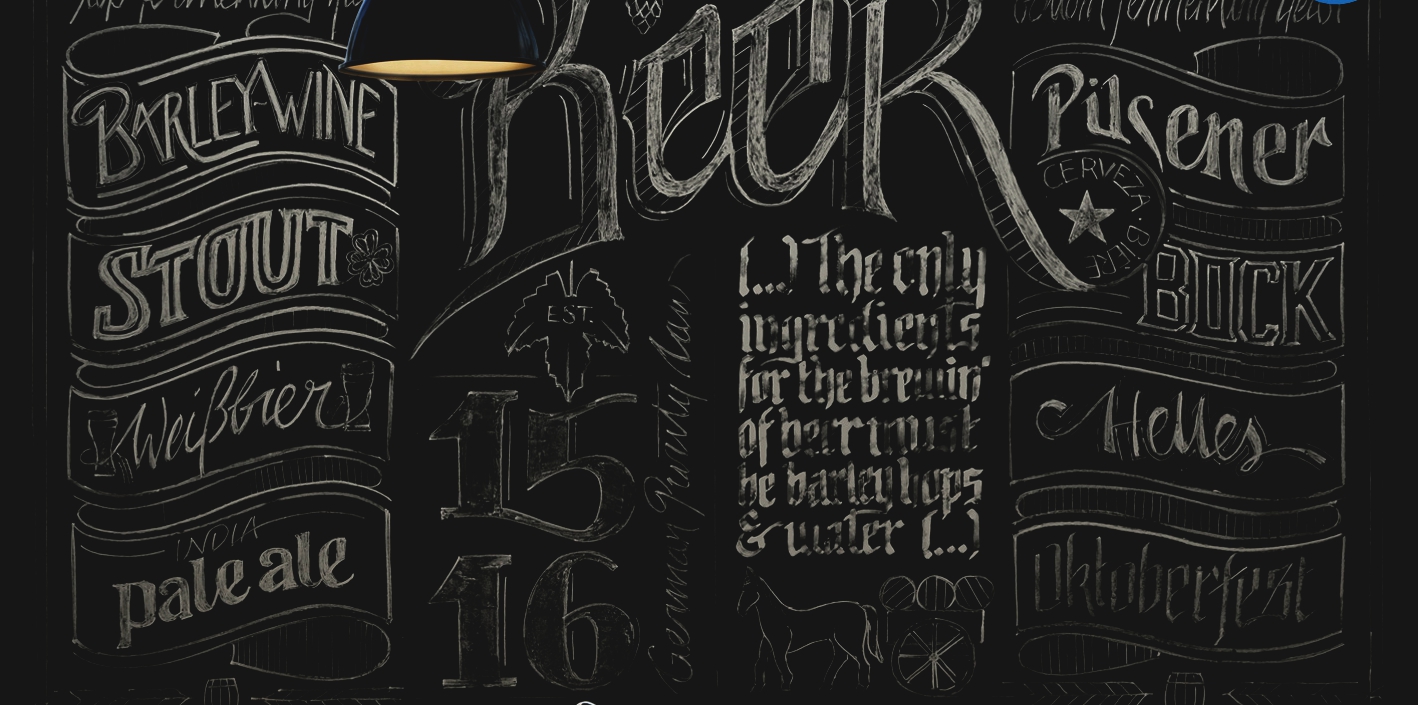 Beer
BARLEY-WINE
STOUT
Weißbier
INDIA
pale ale
EST.
15
16
German Purity Law
(...) The only
ingredients
for the brewin'
of beer must
be barley hops
& water (...)
Pilsener
CERVEZA · BIÈRE
BOCK
Helles
Oktoberfest